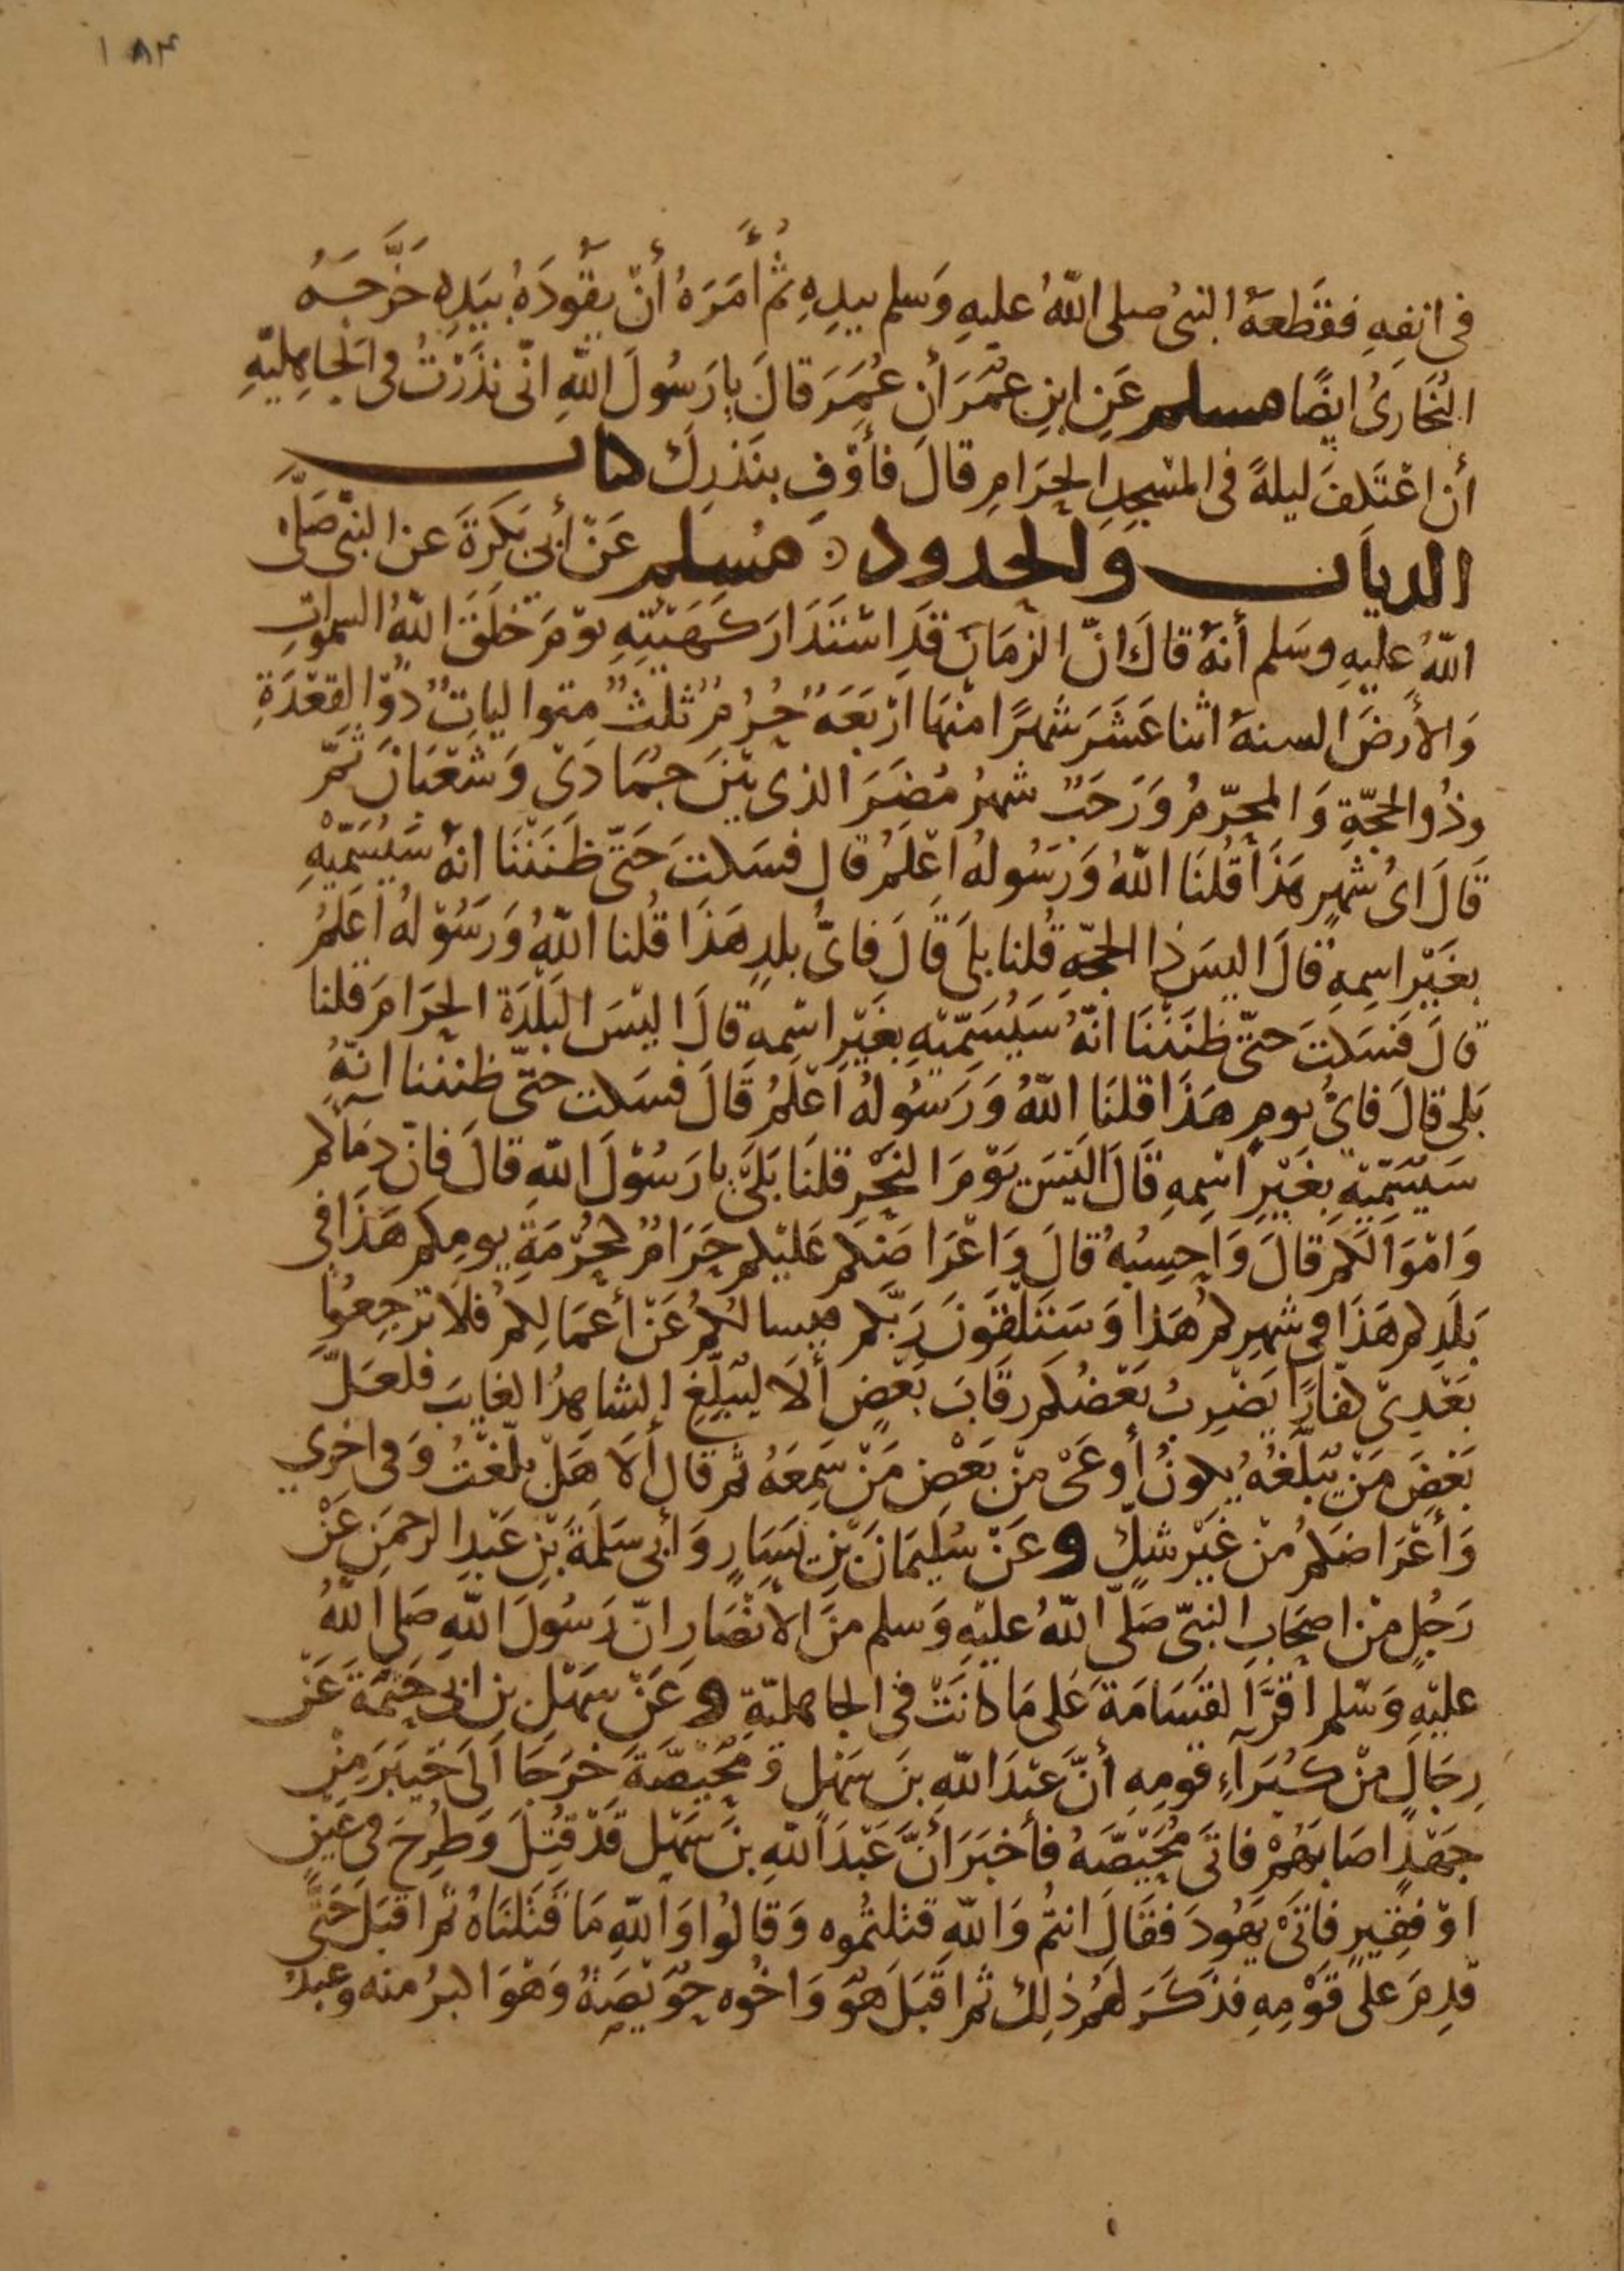 ١٨٣
في انفِهِ فقَطعَهُ النبىُ صلى اللهُ عليهِ وَسلم بيدِهِ ثُمَّ أمَرَهُ أنْ يقُودَهُ بيَدِهِ خَرَّجَهُ
البُخَارىُ ايضًا مسلم عَنِ ابنِ عُمَرَ أن عُمَرَ قالَ يا رَسُولَ اللهِ انّى نذَرْتُ فى الجاهِليّةِ
أن اعْتَكفَ ليلةً فى المسْجِدِ الحَرَامِ قالَ فأوْفِ بنَذرِكَ كتاب
الديات والحدود مُسلم عَنْ أبى بَكرَةَ عنِ النبىِّ صَلَّى
اللهُ عليهِ وسَلم أنهُ قالَ انّ الزمَانَ قَدِ اسْتَدَارَ كَهَيْئتِهِ يوْمَ خَلَقَ اللهُ السموات
وَالأرضَ السنةُ اثنا عَشَرَ شهرًا منْهَا ارْبَعَةٌ حُرُمٌ ثلثٌ متواليات ذُوْ القعْدَةِ
وذُو الحجّةِ وَ المحرّمُ وَرَجَبٌ شهرُ مُضَرَ الذى بيْنَ جُمَادَى وَشَعْبَانَ ثمّ
قَالَ اىُ شهرٍ هَذا قُلنَا اللهُ وَرَسُولهُ اعْلمُ قال فسَكتَ حَتّى ظَنَنّنَا انهُ سَيُسَمّيْهِ
بغَيْرِ اسمِهِ قالَ اليسَ ذا الحجّةِ قُلنا بلَى قالَ فاىُّ بلدٍ هَذَا قُلنا اللهُ وَرَسُوْلهُ اَعلمُ
قالَ فَسَكتَ حتّى ظَنَنّنَا انّهُ سَيُسَمّيْهِ بغَيْرِ اسْمِهِ قالَ اليْسَ البَلْدَةَ الحَرَامَ قلنا
بَلى قالَ فاىُّ يومٍ هَذَا قلنَا اللهُ وَرَسُولهُ اَعْلَمُ قَالَ فسَكت حتّى ظنننا انهُ
سَيُسَمّيْهِ بغَيْرِ اسْمِهِ قَالَ اَليْسَ يوْمَ النّحْرِ قلنَا بَلَى يا رَسُوْلَ اللهِ قالَ فانّ دِمَآكم
وَامْوَالَكمْ قالَ وَاحسِبُهُ قالَ وَاعْرَاضَكم عَليْكم حَرَامٌ كحُرْمَةِ يومِكم هَذَا فى
بَلَدِكم هَذَا فى شهرِكُمْ هَذا وَسَتَلْقَوْنَ رَبّكم فيسالُكُمْ عَنْ أعْمَالِكمْ فلا ترْجِعُوا
بَعْدِىْ كفارًا يَضْرِبُ بَعْضُكم رقَابَ بَعْضٍ ألَا ليُبَلّغِ الشاهِدُ الغايبَ فلعَلّ
بَعْضَ مَنْ يُبَلّغُهُ يكونُ أوعَى منْ بَعْضِ مَنْ سَمِعَهُ ثم قال ألَا هَلْ بلّغْتُ وَفى اخرى
وَأعْرَاضَكُمْ مِنْ غيْرِ شكٍّ وعَنْ سُليمَانَ بْنِ يَسَارٍ وَأبى سَلمَةَ بْنِ عَبْدِ الرحمَنِ عَنْ
رَجُلٍ منْ اصحَابِ النبىّ صَلّى اللهُ عليْهِ وَسلم منَ الأنْصَارِ انّ رَسُولَ اللهِ صَلى اللهُ
عليْهِ وَسْلم اقرَّ القسَامَةَ عَلى مَا كانَتْ فى الجاهليّةِ وعَنْ سَهْلِ بن ابى حَثمَةَ عَنْ
رِجَالٍ منْ كُبَرَآءِ قومِهِ أنَّ عَبْدَ اللهِ بنَ سَهْلٍ وَ مُحَيّصَةَ خرَجَا اَلَى خيْبَرَ مِنْ
جَهْدٍ اصَابَهُمْ فاتَى مُحَيّصَهُ فأخبَرَ أنَّ عَبْدَ اللهِ بنَ سَهْلٍ قَدْ قُتِلَ وَطُرِحَ فى عَيْنٍ
اوْ فقِيرٍ فاتَى يَهُودَ فقَالَ انتمْ وَاللهِ قتلتمُوه وَقالُوا وَاللهِ مَا قَتَلْنَاهُ ثمَّ اقبَلَ حَتّى
قَدِمَ علَى قَوْمِهِ فذَكَرَ لهُمْ ذلِكَ ثمّ اقْبَلَ هُوَ وَاخُوه حُوَيّصَةُ وَهْوَ اكبرُ منه وعبدُ